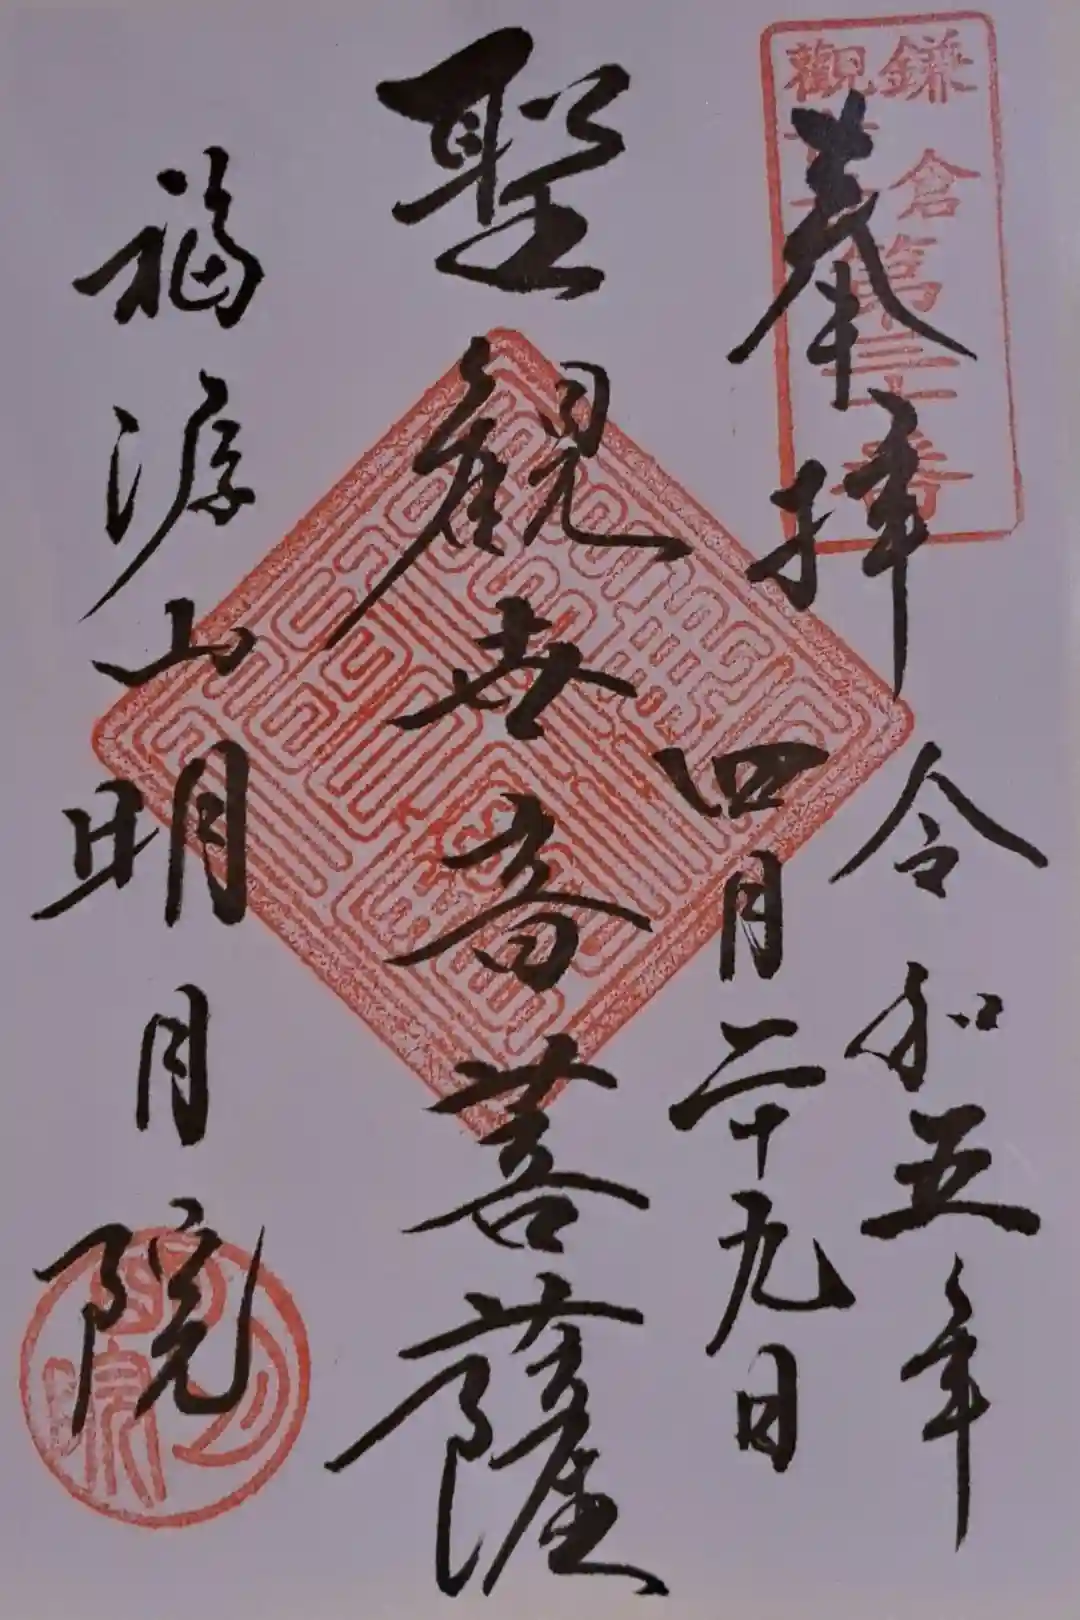 鎌倉
觀音
第三十番
奉拝
令和五年
四月二十九日
聖観世音菩薩
福源山明月院